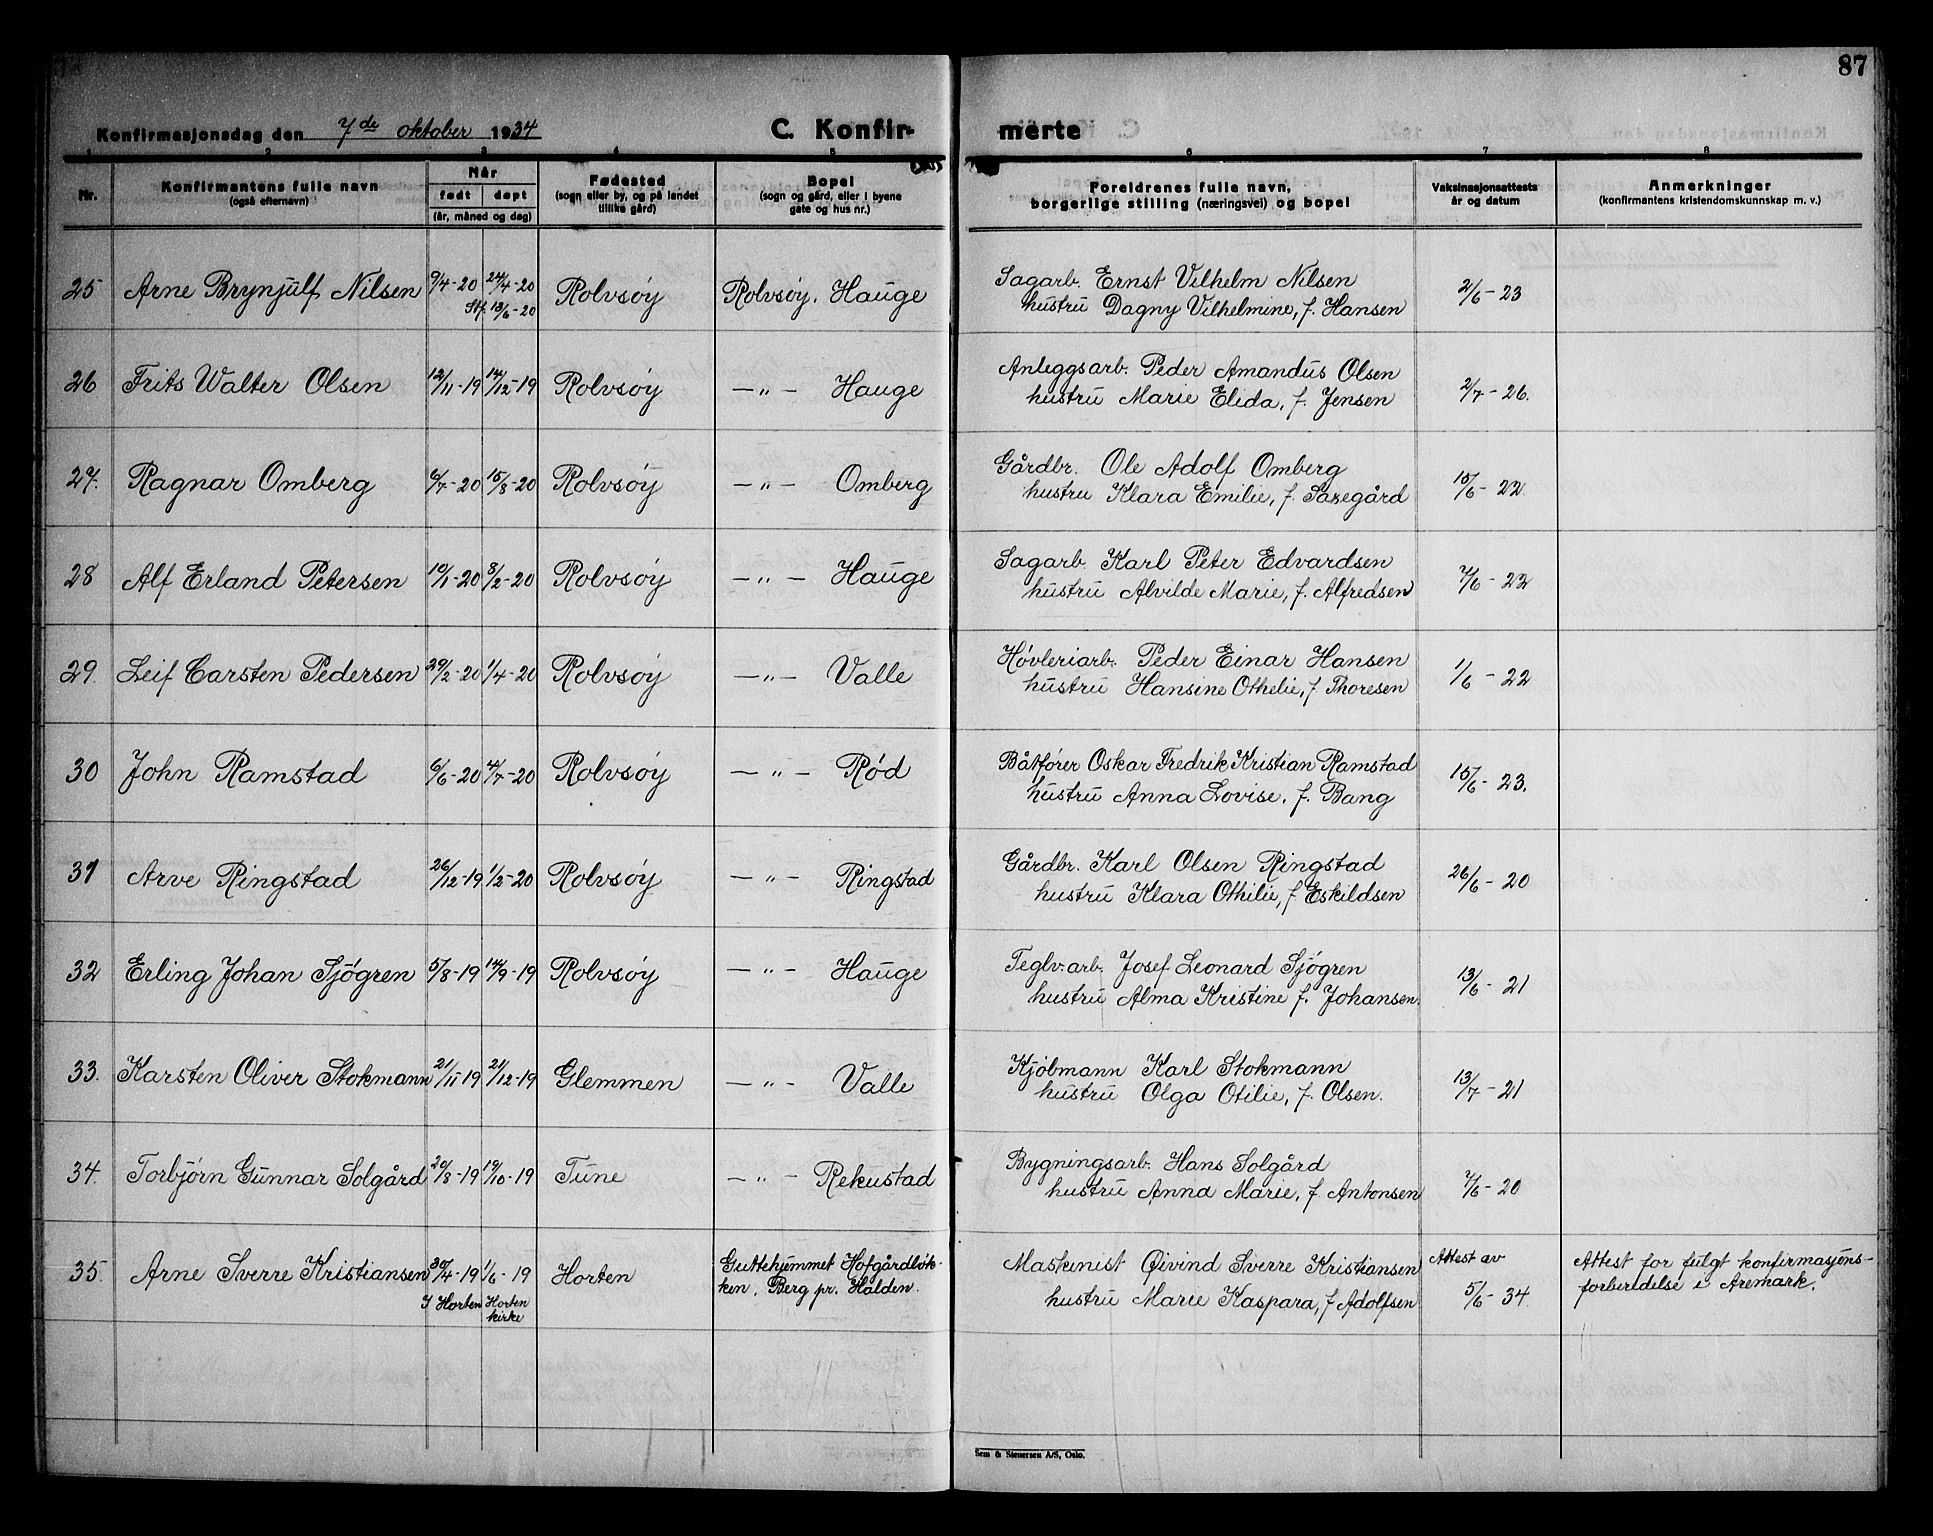 87
Konfirmasjonsdag den 7de oktober 1934 C. Konfir- merte
1 2 3 4 5 6 7 8
Nr. Konfirmantens fulle navn (også efternavn) Når født døpt (år, måned og dag) Fødested (sogn eller by, og på landet tillike gård) Bopel (sogn og gård, eller i byene gate og hus nr.) Foreldrenes fulle navn, borgerlige stilling (næringsvei) og bopel Vaksinasjonsattests år og datum Anmerkninger (konfirmantens kristendomskunnskap m. v.)
25 Arne Brynjulf Nilsen 9/4-20 24/4-20 Stf. 13/6-20 Rolvsøy Rolvsøy. Hauge Sagarb. Ernst Vilhelm Nilsen 2/6-23
hustru Dagny Vilhelmine, f. Hansen
26 Frits Walter Olsen 12/11-19 14/12-19 Rolvsøy -"- Hauge Anleggsarb. Peder Amandus Olsen 2/7-26.
hustru Marie Elida, f. Jensen
27. Ragnar Omberg 6/7-20 15/8-20 Rolvsøy -"- Omberg Gårdbr. Ole Adolf Omberg 15/6-22.
hustru Klara Emilie, f. Saxegård
28 Alf Erland Petersen 10/1-20 8/2-20 Rolvsøy -"- Hauge Sagarb. Karl Peter Edvardsen 7/6-22
hustru Alvilde Marie, f. Alfredsen
29. Leif Carsten Pedersen 29/2-20 1/4-20 Rolvsøy -"- Valle Høvleriarb. Peder Einar Hansen 1/6-22
hustru Hansine Othelie, f. Thoresen
30 John Ramstad 6/6-20 4/7-20 Rolvsøy -"- Rød Båtfører Oskar Fredrik Kristian Ramstad 15/6-23.
hustru Anna Lovise, f. Bang
31 Arve Ringstad 26/12-19 1/2-20 Rolvsøy -"- Ringstad Gårdbr. Karl Olsen Ringstad 26/6-20
hustru Klara Othilie, f Eskildsen
32 Erling Johan Sjögren 5/8-19 14/9-19 Rolvsøy -"- Hauge Teglv.arb. Josef Leonard Sjögren 13/6-21
hustru Alma Kristine f. Johansen.
33. Karsten Oliver Stokmann 21/11-19 21/12-19 Glemmen -"- Valle Kjøbmann Karl Stokmann 13/7-21
hustru Olga Otilie, f. Olsen.
34. Torbjørn Gunnar Solgård 20/8-19 19/10-19 Tune -"- Rekustad Bygningsarb. Hans Solgård 7/6-20
hustru Anna Marie, f. Antonsen
35. Arne Sverre Kristiansen 30/4-19 1/6-19 Horten Guttehjemmet Hofgårdløk- Maskinist Øivind Sverre Kristiansen Attest av Attest for fulgt konfirmasjons-
I Horten Horten kirke ken, Berg pr. Halden. hustru Marie Kaspara, f Adolfsen 5/6-34. forberedelse i Aremark.
Sem & Stenersen A/S, Oslo.